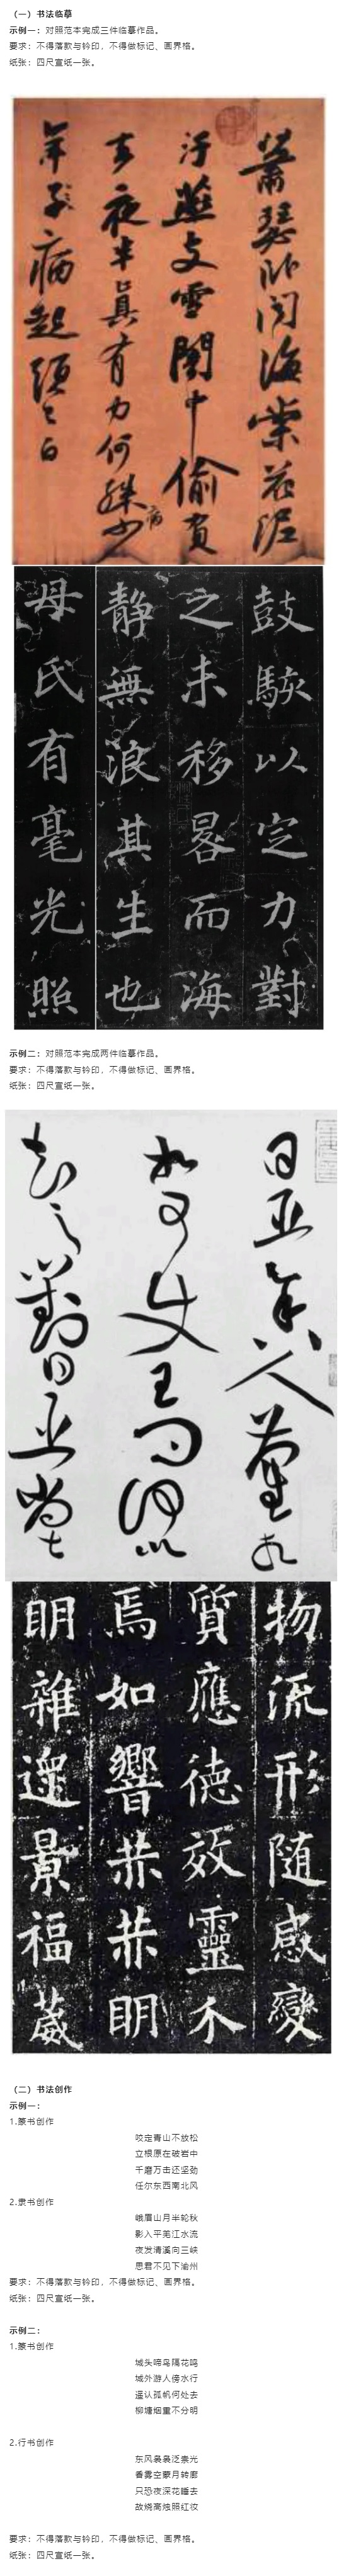 （一）书法临摹
示例一：对照范本完成三件临摹作品。
要求：不得落款与钤印，不得做标记、画界格。
纸张：四尺宣纸一张。
蕭瑟卧聞海棠花泥
汙燕支雪闇中偷負
去夜半真有力何殊少
病
年子病起頭已白
鼓駭以定力對
之未移晷而海
靜無浪其生也
母氏有毫光照
示例二：对照范本完成两件临摹作品。
要求：不得落款与钤印，不得做标记、画界格。
纸张：四尺宣纸一张。
物流形随感變
質應德效靈不
焉如響赫赫明
明雜遝景福葳
（二）书法创作
示例一：
1.篆书创作
咬定青山不放松
立根原在破岩中
千磨万击还坚劲
任尔东西南北风
2.隶书创作
峨眉山月半轮秋
影入平羌江水流
夜发清溪向三峡
思君不见下渝州
要求：不得落款与钤印，不得做标记、画界格。
纸张：四尺宣纸一张。
示例二：
1.篆书创作
城头啼鸟隔花鸣
城外游人傍水行
遥认孤帆何处去
柳塘烟重不分明
2.行书创作
东风袅袅泛崇光
香雾空蒙月转廊
只恐夜深花睡去
故烧高烛照红妆
要求：不得落款与钤印，不得做标记、画界格。
纸张：四尺宣纸一张。